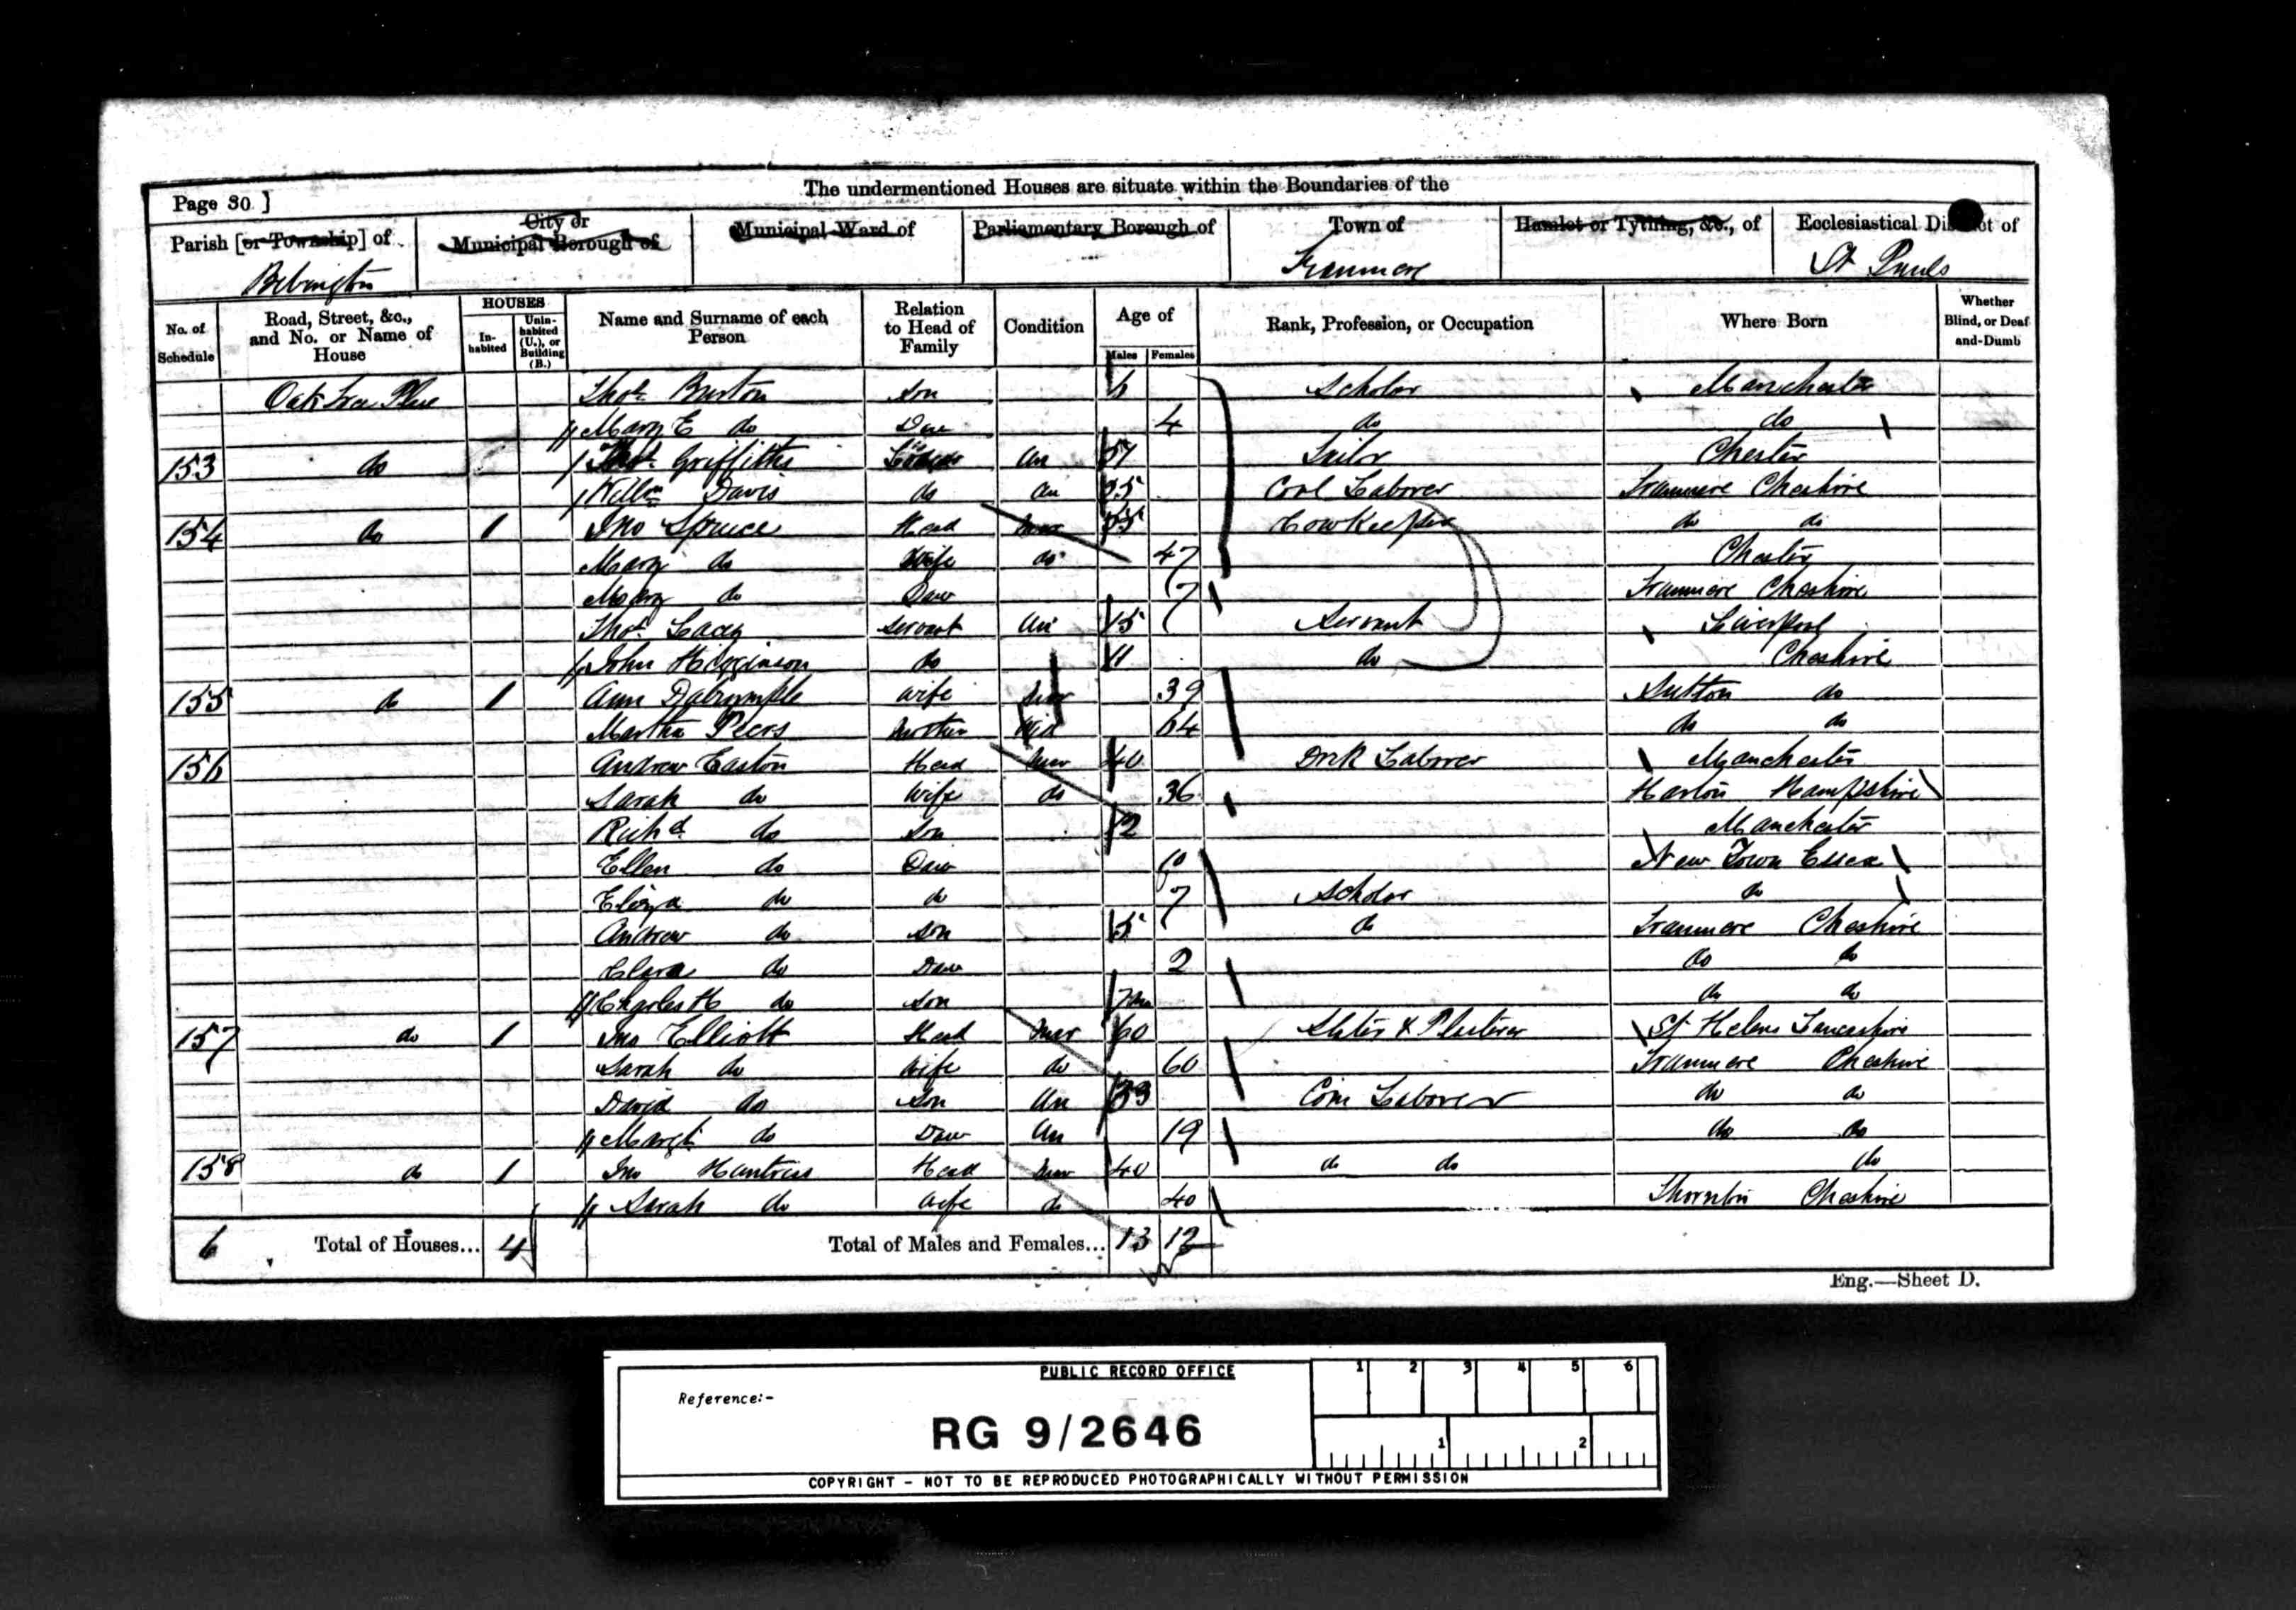 The undermentioned Houses are situate within the Boundaries of the
Page 30 ]
Parish [or Township] of
Bebington
City or Municipal Borough of
Municipal Ward of
Parliamentary Borough of
Town of
Tranmere
Hamlet or Tything, &c., of
Ecclesiastical District of
St Pauls
No. of Schedule
Road, Street, &c., and No. or Name of House
HOUSES
Inhabited
Uninhabited (U.), or Building (B.)
Name and Surname of each Person
Relation to Head of Family
Condition
Age of
Males Females
Rank, Profession, or Occupation
Where Born
Whether Blind, or Deaf-and-Dumb
Oak Tree Place Thos. Burton Son 6 Scholar Manchester
Mary E do Dau 4 do do
153 do Thos. Griffiths Un 57 Tailor Chester
Willm Davis do Un 25 Coal Laborer Tranmere Cheshire
154 do 1 Jno Spruce Head Mar 55 Cowkeeper do do
Mary do Wife do 47 Chester
Mary do Daw 7 Tranmere Cheshire
Thos. Lacey Servant Un 15 Servant Liverpool
John Higginson do 11 do Cheshire
155 do 1 Ann Dalrymple Wife Mar 39 Sutton do
Martha Peers Mother Wid 64 do do
156 Andrew Easton Head Mar 40 Dock Laborer Manchester
Sarah do Wife do 36 Hampshire
Richd. do Son 12 Manchester
Ellen do Daw 10 New Town Essex
Eliza do do 7 Scholar do
Andrew do Son 5 do Tranmere Cheshire
Clara do Daw 2 do do
Charles H do Son 7mo do do
157 do 1 Jno Elliott Head Mar 60 Slater & Plasterer St Helens Lancashire
Sarah do Wife do 60 Tranmere Cheshire
David do Son Un 33 Laborer do do
Margt. do Daw Un 19 do do
158 do 1 Jno Huntriss Head Mar 40 do do do
Sarah do Wife do 40 Thornton Cheshire
6 Total of Houses... 4 Total of Males and Females... 13 12
Eng.—Sheet D.
PUBLIC RECORD OFFICE
Reference:-
RG 9/2646
1 2 3 4 5 6
1 2
COPYRIGHT - NOT TO BE REPRODUCED PHOTOGRAPHICALLY WITHOUT PERMISSION